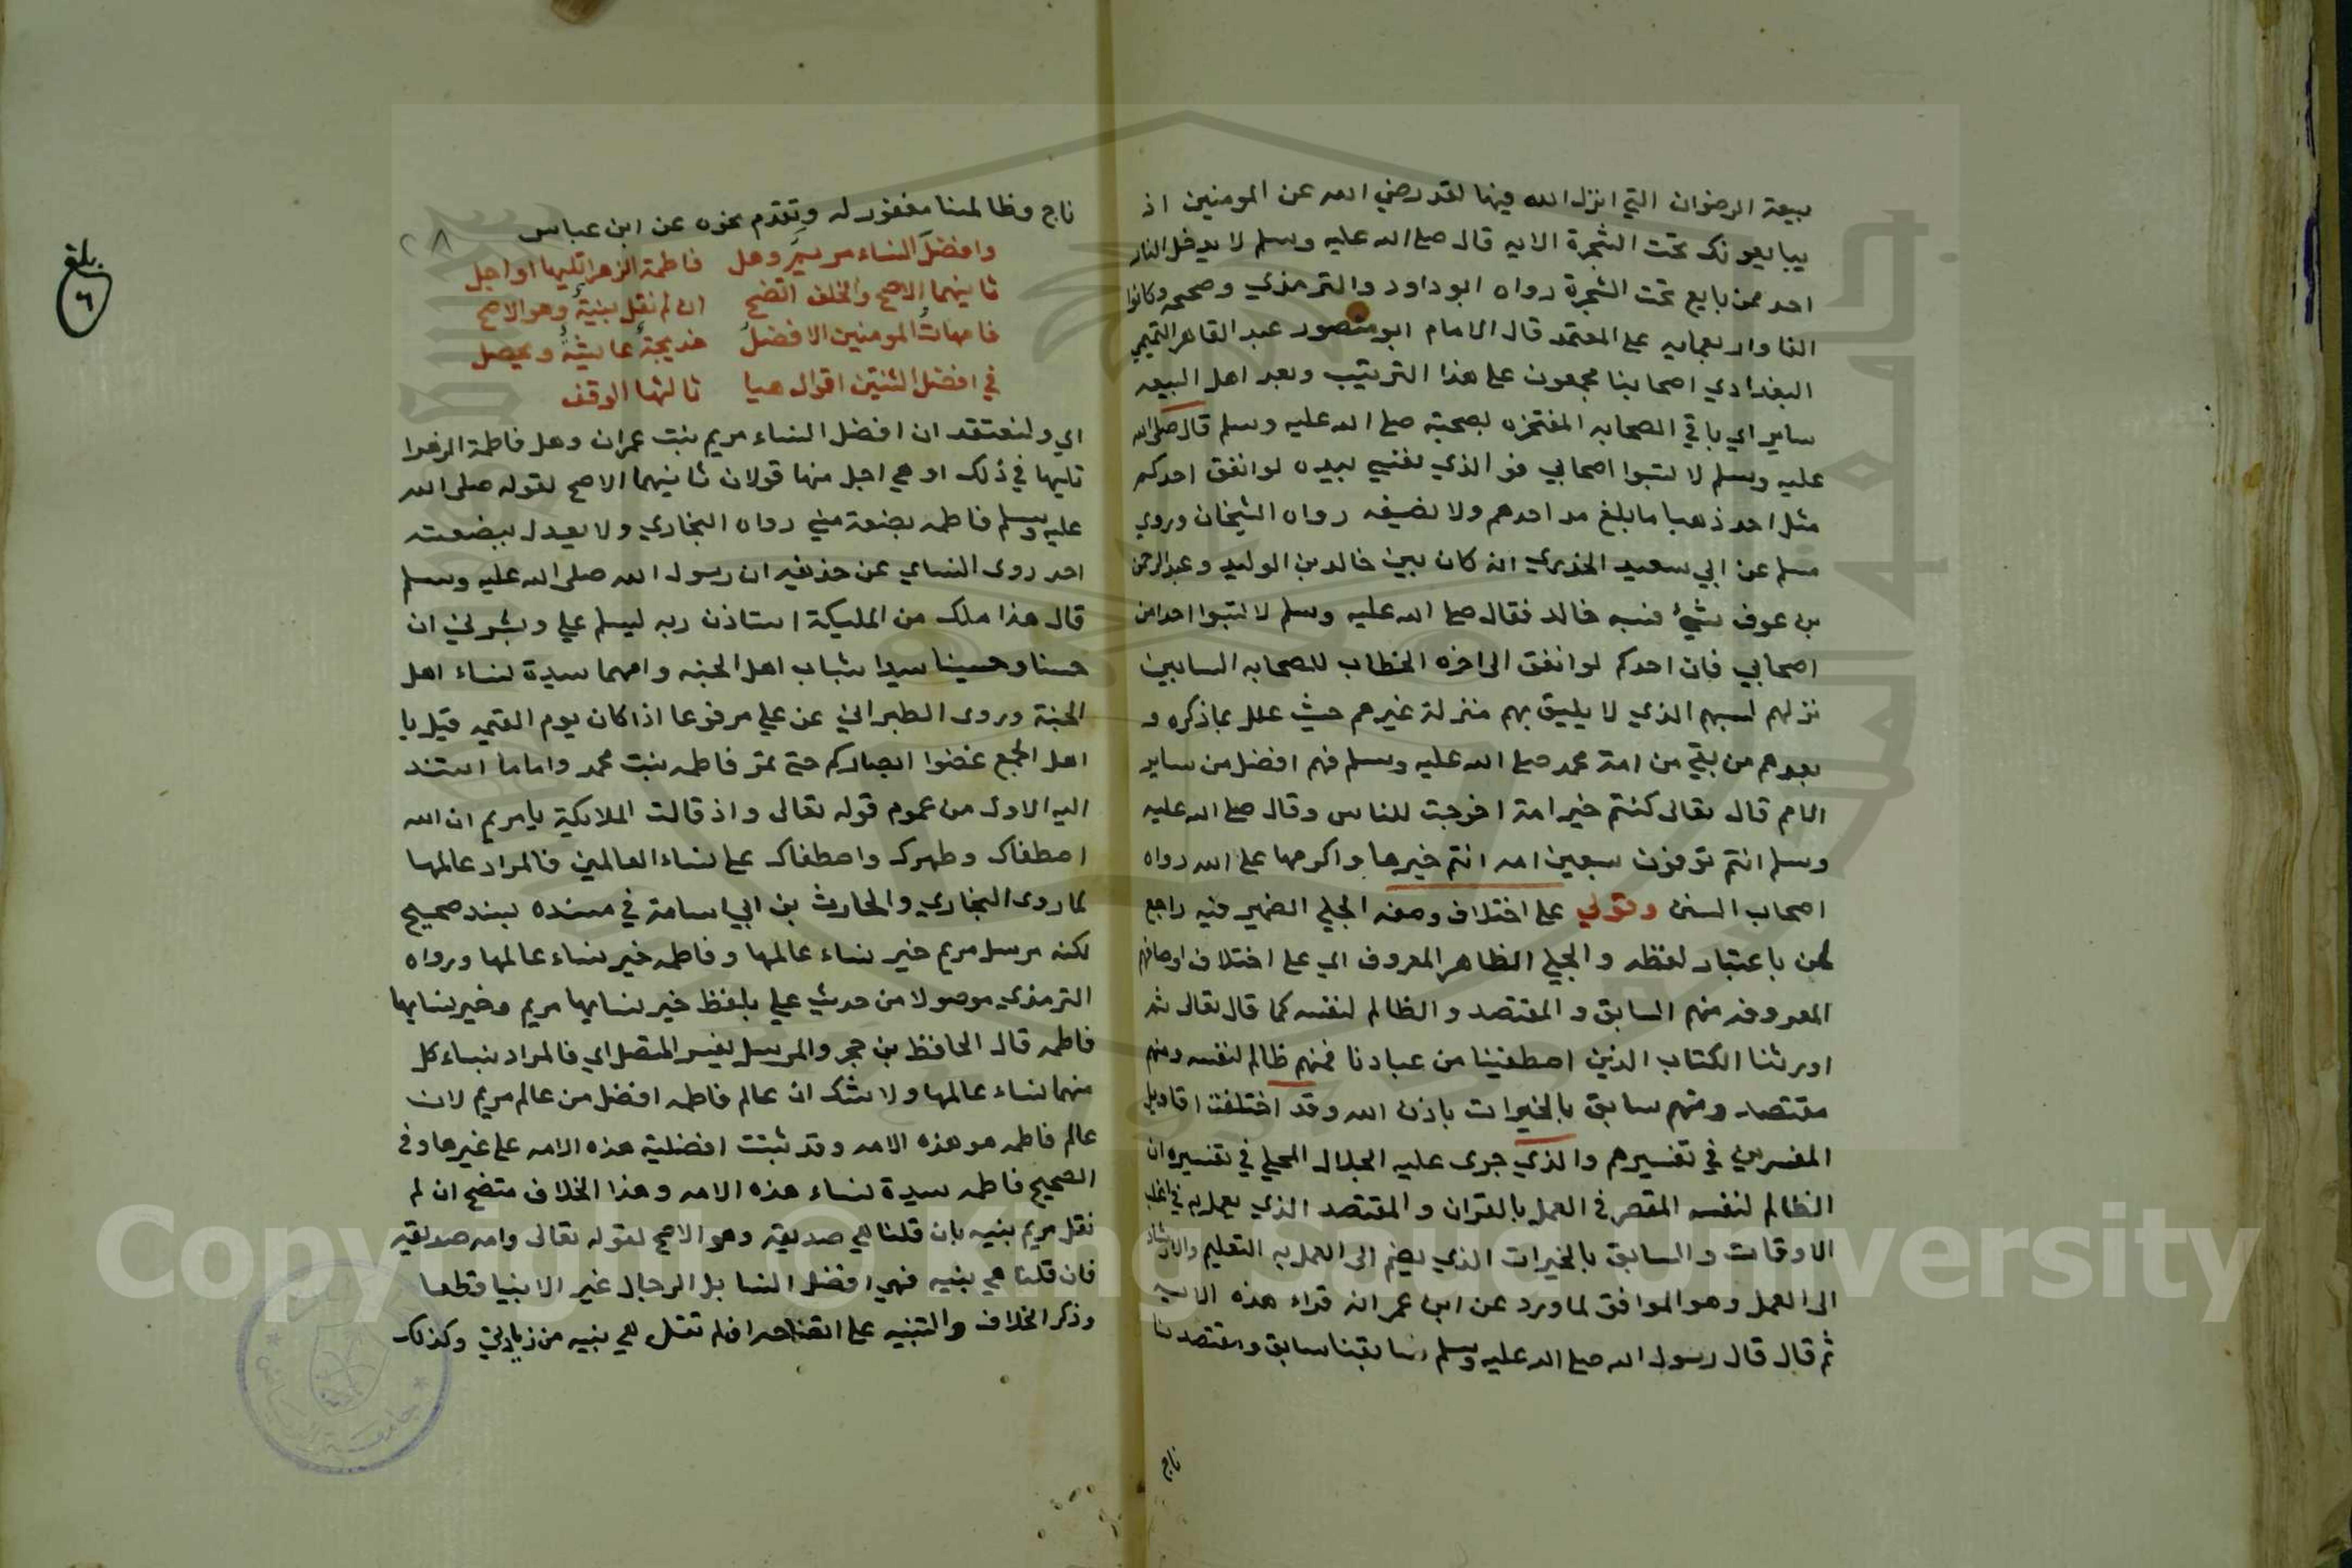 بيعة الرضوان التي انزل الله فيها لقد رضي الله عن المومنين اذ
يبايعونك تحت الشجرة الايه قال صلى الله عليه وسلم لا يدخل النار
احد ممن بايع تحت الشجرة رواه ابو داود والترمذي وصححه وكانوا
الفا واربعمايه على المعتمد قال الامام ابو منصور عبد القاهر التميمي
البغدادي اصحابنا مجمعون على هذا الترتيب وبعد اهل البيعه
ساير اي باقي الصحابه المفتخره بصحبة صلى الله عليه وسلم قال صلى الله
عليه وسلم لا تسبوا اصحابي فو الذي نفسي بيده لو انفق احدكم
مثل احد ذهبا ما بلغ مد احدهم ولا نصيفه رواه الشيخان وروي
مسلم عن ابي سعيد الخدري انه كان بين خالد بن الوليد وعبد الرحمن
بن عوف شيء فسبه خالد فقال صلى الله عليه وسلم لا تسبوا احدا من
اصحابي فان احدكم لو انفق الى اخره الخطاب للصحابه السابين
نزلهم لسبهم الذي لا يليق بهم منزلة غيرهم حيث علل بما ذكره و
بعدهم من بقي من امة محمد صلى الله عليه وسلم فهم افضل من ساير
الامم قال تعالى كنتم خير امة اخرجت للناس وقال صلى الله عليه
وسلم انتم توفون سبعين امه انتم خيرها واكرمها على الله رواه
اصحاب السنن وقولي على اختلاف وصفه الجلي الضمير فيه راجع
لمن باعتبار لفظه والجلي الظاهر المعروف اي على اختلاف اوصافهم
المعروفه منهم السابق و المقتصد و الظالم لنفسه كما قال تعالى ثم
اورثنا الكتاب الذين اصطفينا من عبادنا فمنهم ظالم لنفسه ومنهم
مقتصد ومنهم سابق بالخيرات باذن الله وقد اختلفت اقاويل
المفسرين في تفسيرهم والذي جرى عليه الجلال المحلي في تفسيره ان
الظالم لنفسه المقصر في العمل بالقران و المقتصد الذي يعمل به في اغلب
الاوقات و السابق بالخيرات الذي يضم الى العمل به التعليم والارشاد
الى العمل وهو الموافق لما ورد عن ابن عمر انه قراء هذه الايه
ثم قال قال رسول الله صلى الله عليه وسلم سابقنا سابق ومقتصدنا
ناج
ناج وظالمنا مغفور له وتقدم نحوه عن ابن عباس
وافضل النساء مريم وهل فاطمة الزهرا تليها او اجل
ثانيهما الاصح والخلف اتضح ان لم نقل بنبية وهو الاصح
فامهات المومنين الافضل خديجة عايشة ويحصل
في افضل الثنتين اقوال هيا ثالثها الوقف
اي ولنعتقد ان افضل النساء مريم بنت عمران وهل فاطمة الزهرا
تليها في ذلك او هي اجل منها قولان ثانيهما الاصح لقوله صلى الله
عليه وسلم فاطمه بضعة مني رواه البخاري ولا يعدل ببضعته
احد روى النساي عن حذيفه ان رسول الله صلى الله عليه وسلم
قال هذا ملك من المليكة استاذن ربه ليسلم علي وبشرني ان
حسنا وحسينا سيدا شباب اهل الجنه وامهما سيدة نساء اهل
الجنة وروى الطبراني عن علي مرفوعا اذا كان يوم القيمه قيل يا
اهل الجمع غضوا ابصاركم حتى تمر فاطمه بنت محمد واما ما استند
اليه الاول من عموم قوله تعالى واذ قالت الملايكة يا مريم ان الله
اصطفاك وطهرك واصطفاك على نساء العالمين فالمراد عالمها
لما روى البخاري والحارث بن ابي اسامة في مسنده بسند صحيح
لكنه مرسل مريم خير نساء عالمها وفاطمه خير نساء عالمها ورواه
الترمذي موصولا من حديث علي بلفظ خير نسايها مريم وخير نسايها
فاطمه قال الحافظ بن حجر والمرسل يفسر المتصل اي فالمراد بنساء كل
منهما نساء عالمها ولا شك ان عالم فاطمه افضل من عالم مريم لان
عالم فاطمه هو هذه الامه وقد ثبتت افضلية هذه الامه على غيرها وفي
الصحيح فاطمه سيدة نساء هذه الامه وهذا الخلاف متضح ان لم
نقل مريم بنبيه بان قلنا هي صديقه وهو الاصح لقوله تعالى وامه صديقه
فان قلنا هي نبيه فهي افضل النسا بل الرجال غير الانبيا قطعا
وذكر الخلاف والتنبيه على اتضاحه ان لم نقل هي نبيه من زيادتي وكذلك
بلغ
٦
٢٨
Copyright © King Saud University